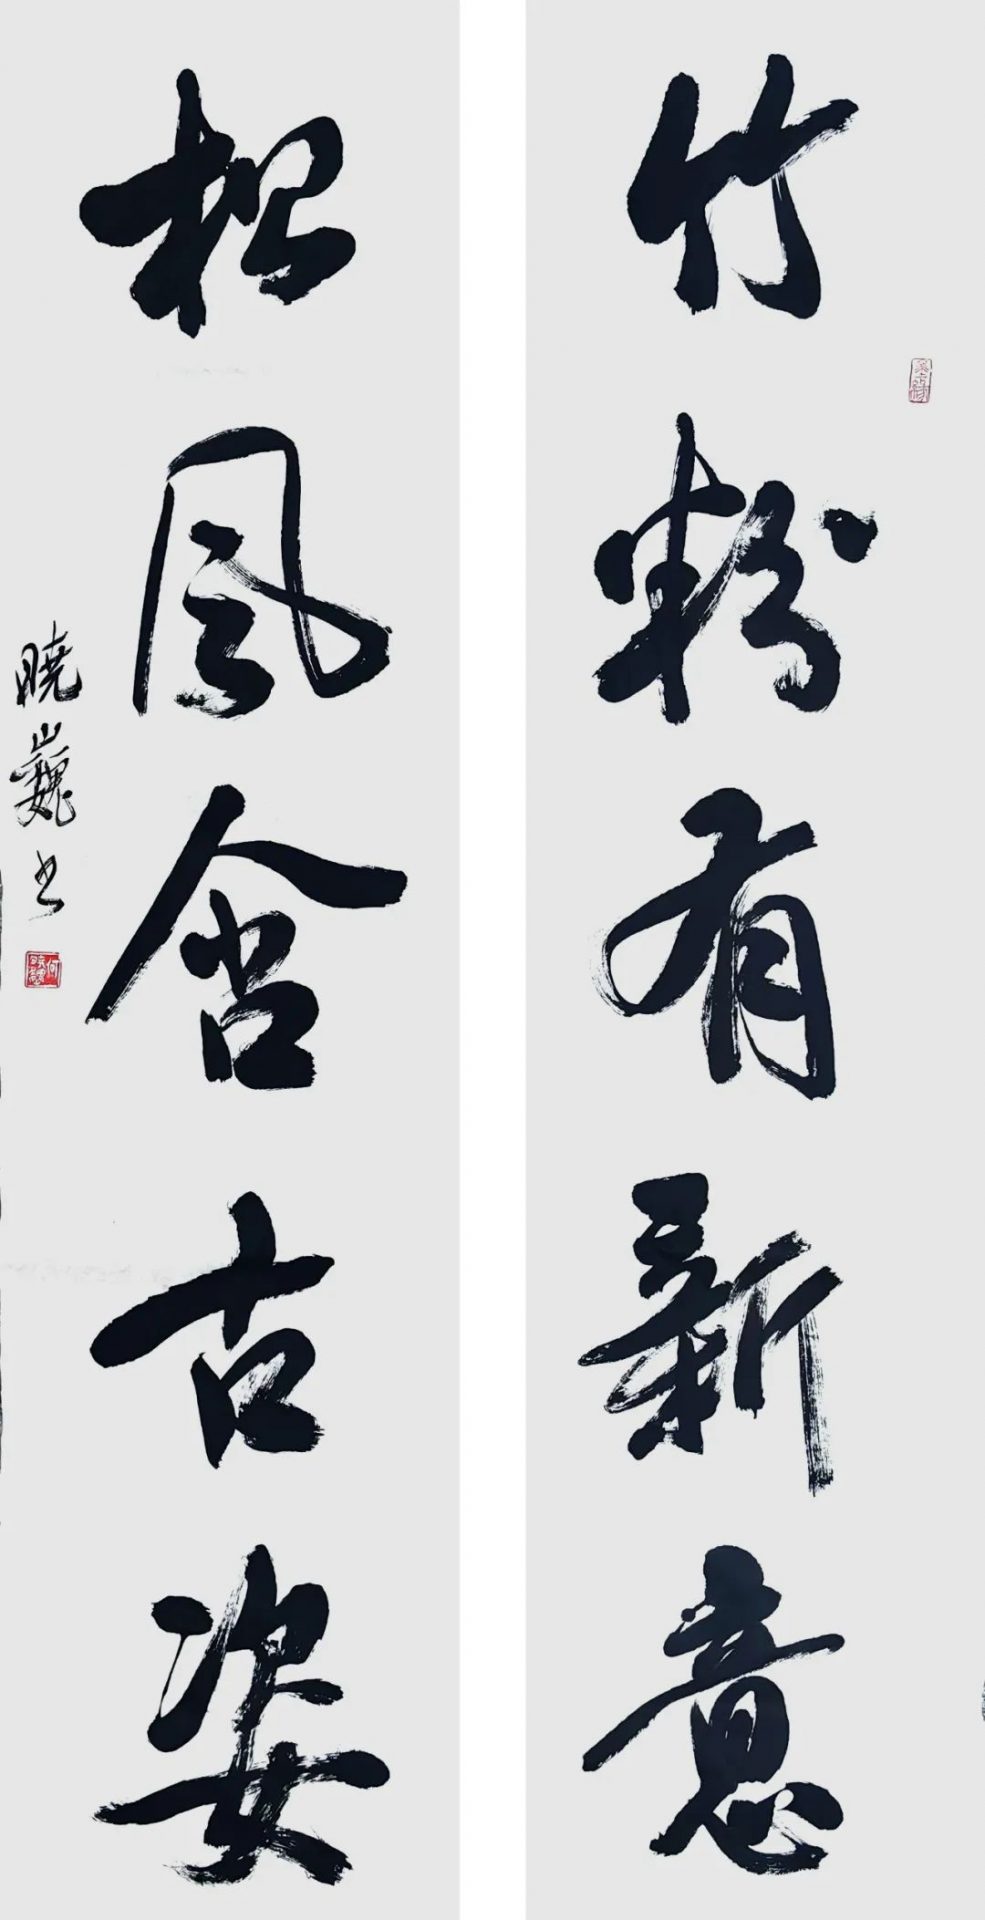 竹粉有新意
松风含古姿
晓巍书